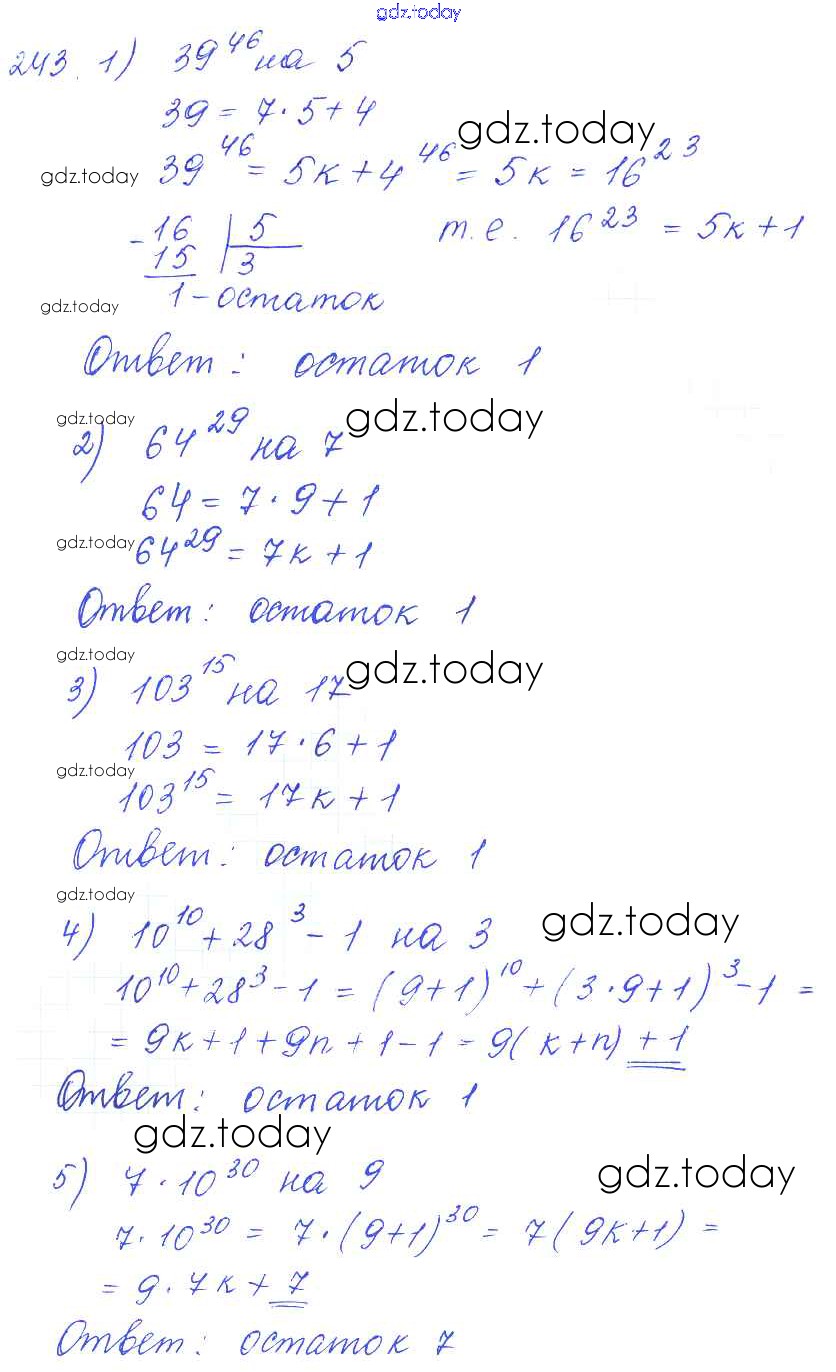 gdz.today
243. 1) 39^46 на 5
39 = 7·5+4
gdz.today
gdz.today 39^46 = 5к+4^46 = 5к = 16^23
-16 | 5 т.е. 16^23 = 5к+1
15 | 3
gdz.today 1-остаток
Ответ: остаток 1
gdz.today gdz.today
2) 64^29 на 7
64 = 7·9+1
gdz.today 64^29 = 7к+1
Ответ: остаток 1
gdz.today gdz.today
3) 103^15 на 17
103 = 17·6+1
gdz.today
103^15 = 17к+1
Ответ: остаток 1
gdz.today gdz.today
4) 10^10+28^3-1 на 3
10^10+28^3-1 = (9+1)^10+(3·9+1)^3-1 =
= 9к+1+9n+1-1 = 9(к+n)+1
Ответ: остаток 1
gdz.today gdz.today
5) 7·10^30 на 9
7·10^30 = 7·(9+1)^30 = 7(9к+1) =
= 9·7к+7
Ответ: остаток 7